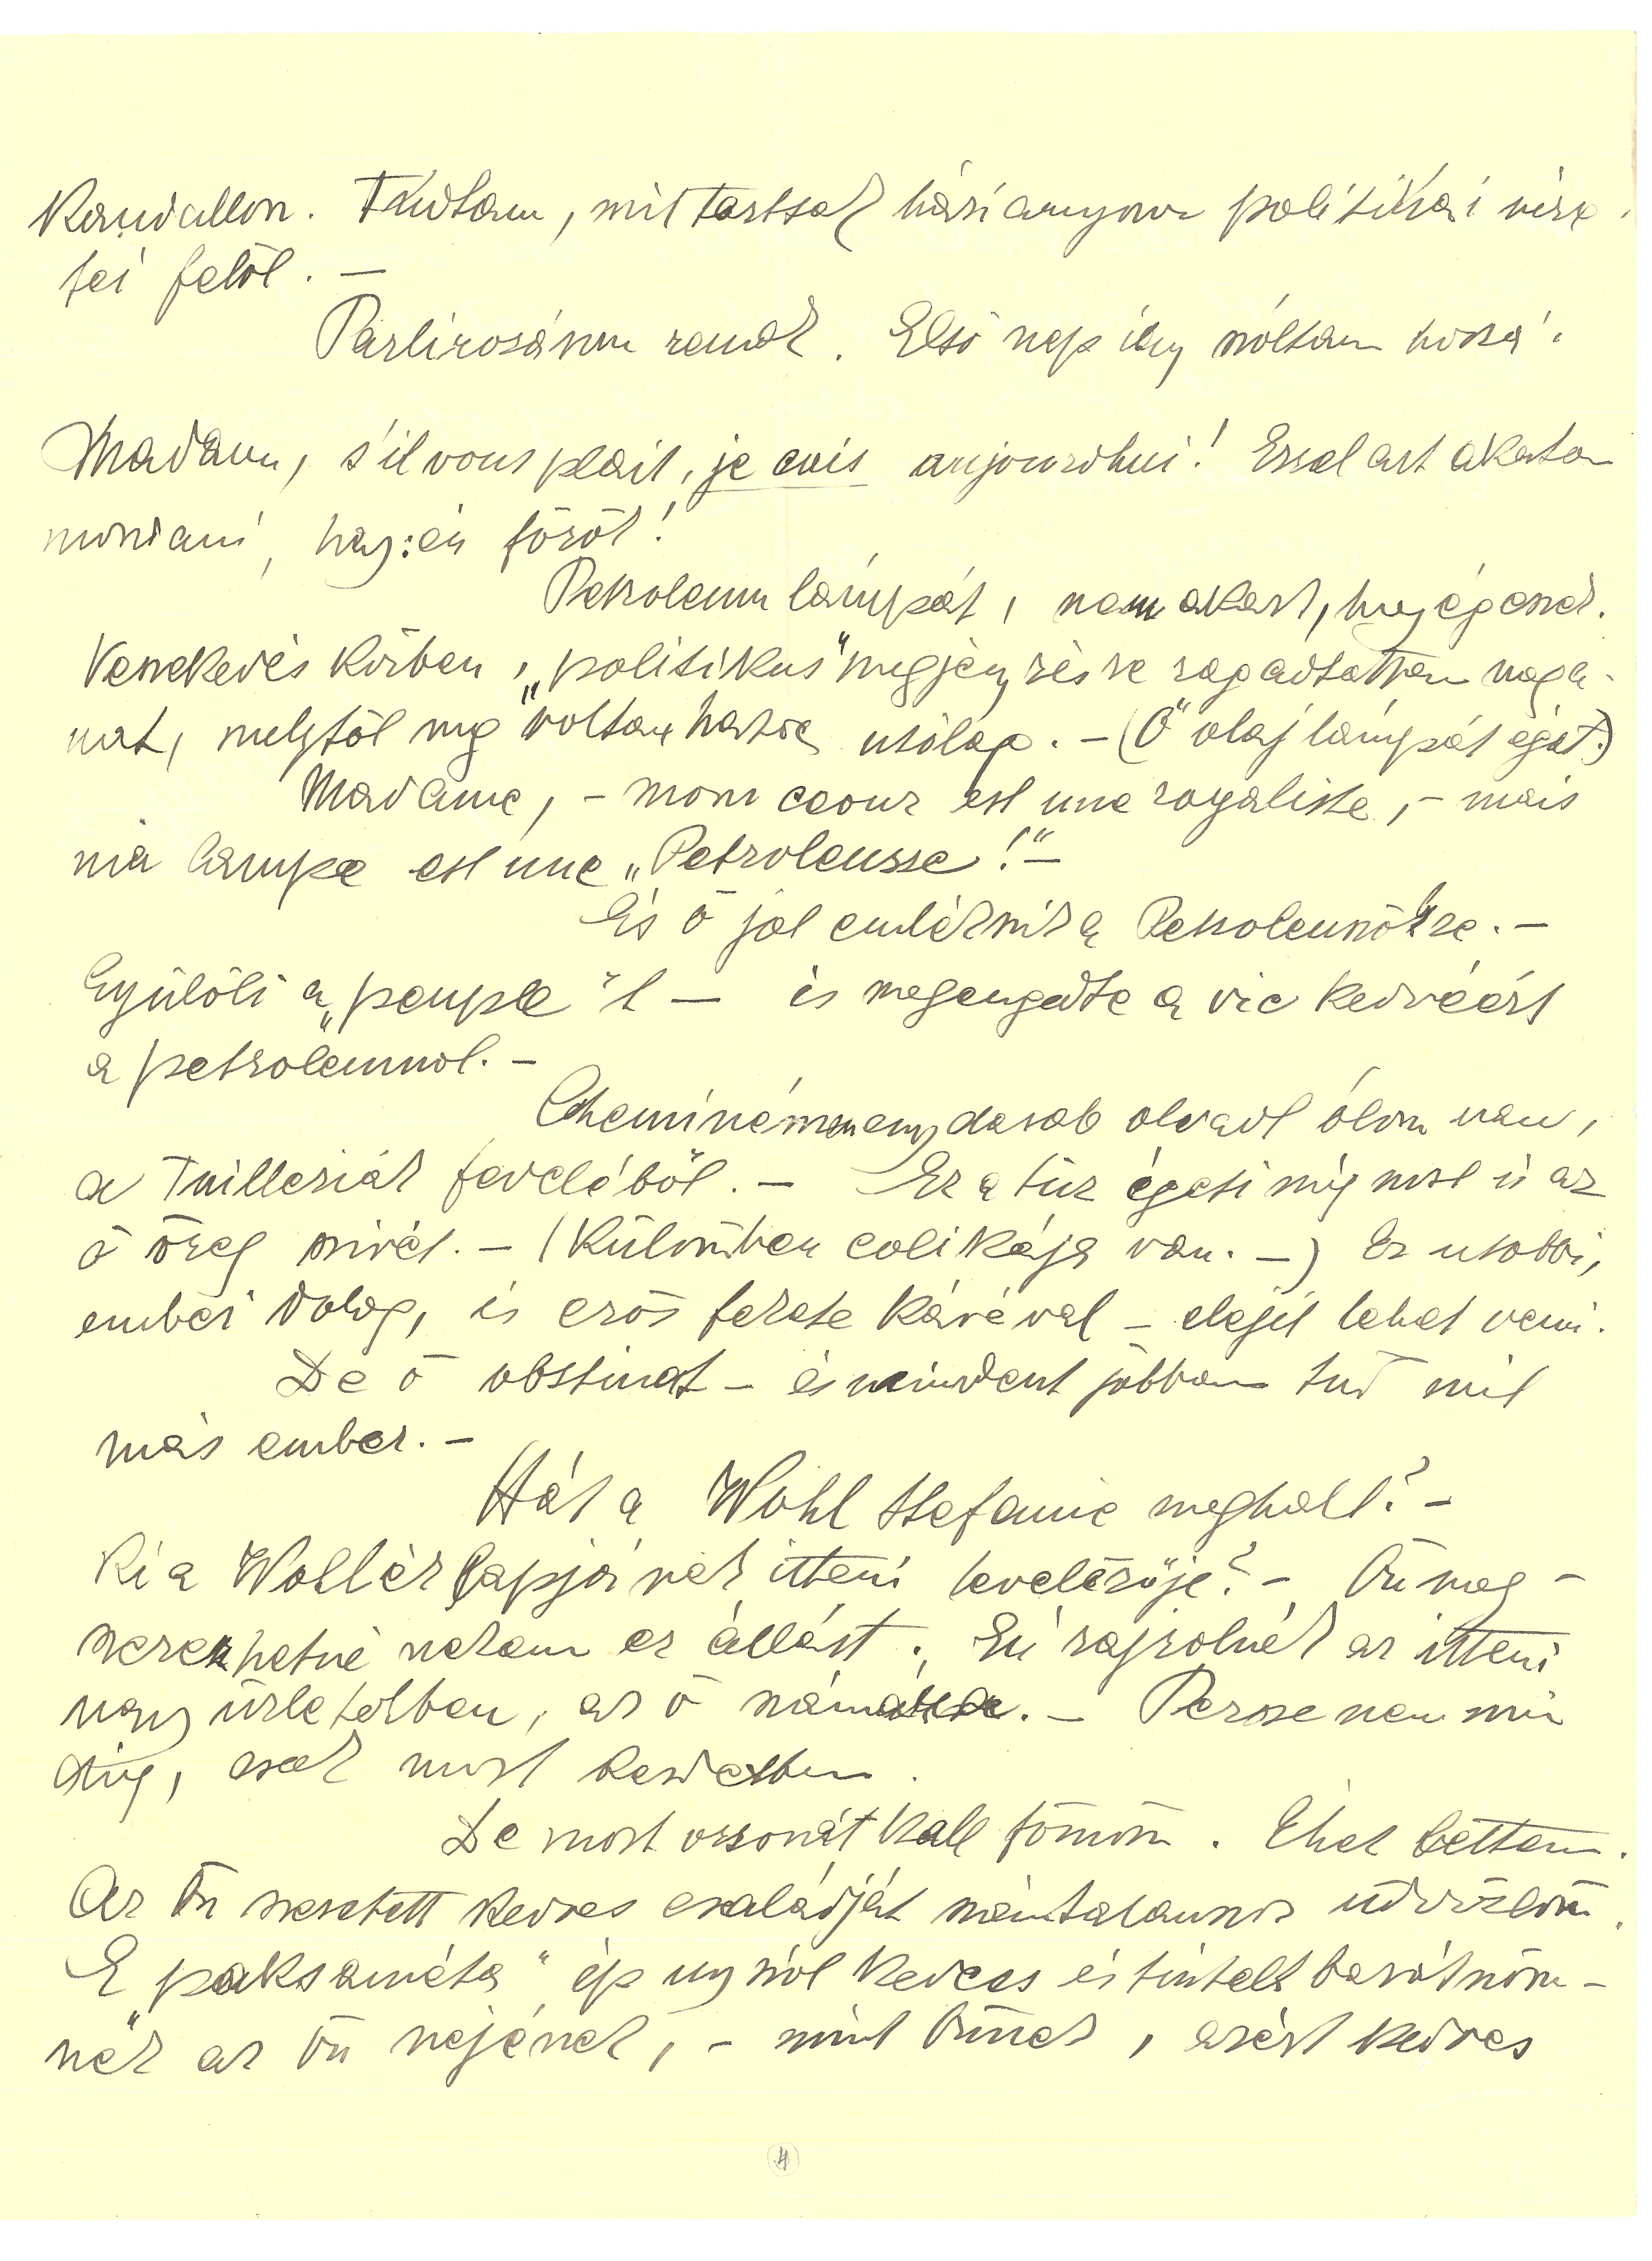 Kandallon. Tudtam, mit tartsak házianyom politikai néze-
tei felöl. –
Parlirozásom remek. Elsö nap így szóltam hozzá:
Madam, s'il vous plait, je cuis aujourdhui! Ezzel azt akartam
mondani, hogy: én fözök!
Petroleum lámpát, nem akart, hogy égessek.
Veszekedés közben, „politikus" megjegyzésre ragadtattam maga-
mat, melytöl meg voltam hatva utólag. – (Ö olaj lámpát éget.)
Madame, – mon coour est une royaliste, – mais
ma lampe est une „Petroleusse!" –
És ö jol emlékszik a Petroleunökre. –
Gyülöli a „peuple"t – és megengedte a vic kedvéért
a petroleumol. –
Cheminémen egy darab olvadt ólom van,
a Tuilleriák fedeléböl. – Ez a tüz égeti még most is az
ö öreg szivét. – (Külömben colikája van. –) Ez utobbi,
emberi dolog, és erös fekete kávéval – elejét lehet venni.
De ö obstinat – és mindent jobban tud mit
más ember. –
Hát a Wohl Stefanie meghalt? –
Ki a Wohlék lapjának itteni levelezöje? – Ön meg-
szerezhetné nekem ez állást. Én rajzolnék az itteni
nagy üzletekben, az ö számára. – Persze nem min
dig, csak most kezdetben.
De most ozsonát kell föznöm. Éhes lettem.
Az Ön szeretett kedves családját számtalanszor üdvözlöm.
E „paksaméta" ép ugy szól kedves és tisztelt barátnöm-
nek az Ön nejének, – mint Önnek, azért kedves
4